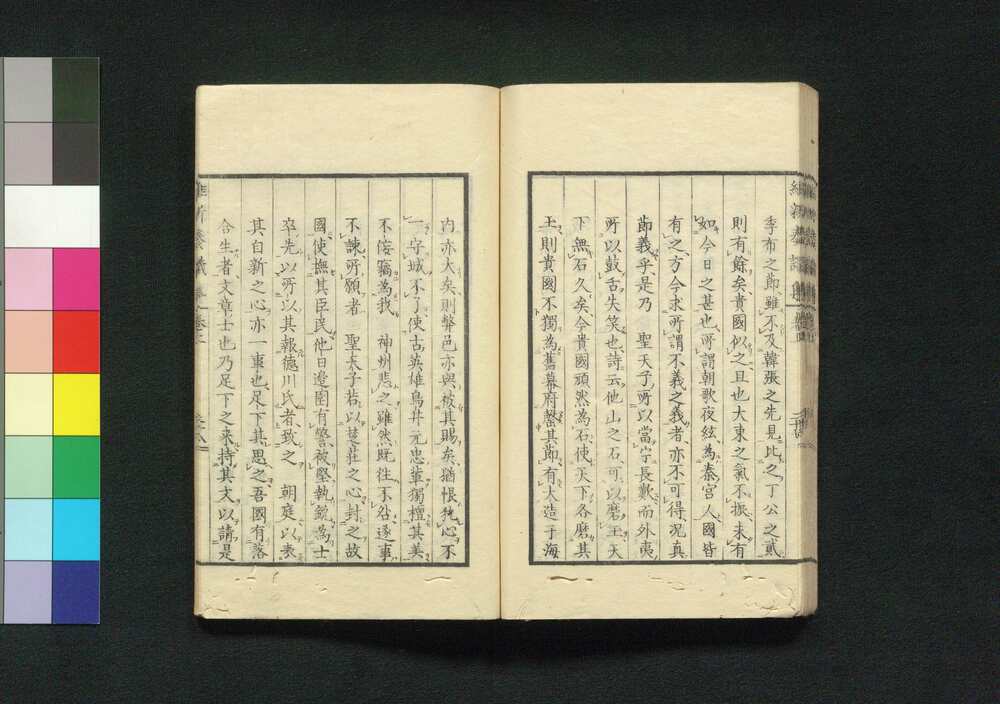 季布之節雖不及韓張之先見比之丁公之貳
則有餘矣貴國似之且也大東之氣不振未有
如今日之甚也所謂朝歌夜絃為秦宮人國皆
有之方今求所謂不義之義者亦不可得况真
節義乎是乃 聖天子所以當宁長歎而外夷
所以鼓舌失笑也詩云他山之石可以磨玉天
下無石久矣今貴國頑然為石使天下各磨其
玉則貴國不獨為舊幕府罄其節有大造于海
内亦大矣則弊邑亦與被其賜矣猶恨先心不
一守城不了使古英雄鳥井元忠輩獨擅其美
不侫竊為我 神州悲之雖然既徃不咎遂事
不諫所願者 聖天子若以楚莊之心封之故
國使撫其臣民他日邊圉有警被堅執銳為士
卒先以所以其報德川氏者致之 朝庭以表
其自新之心亦一事也足下其思之吾國有落
合生者文章士也乃足下之来持其文以請是